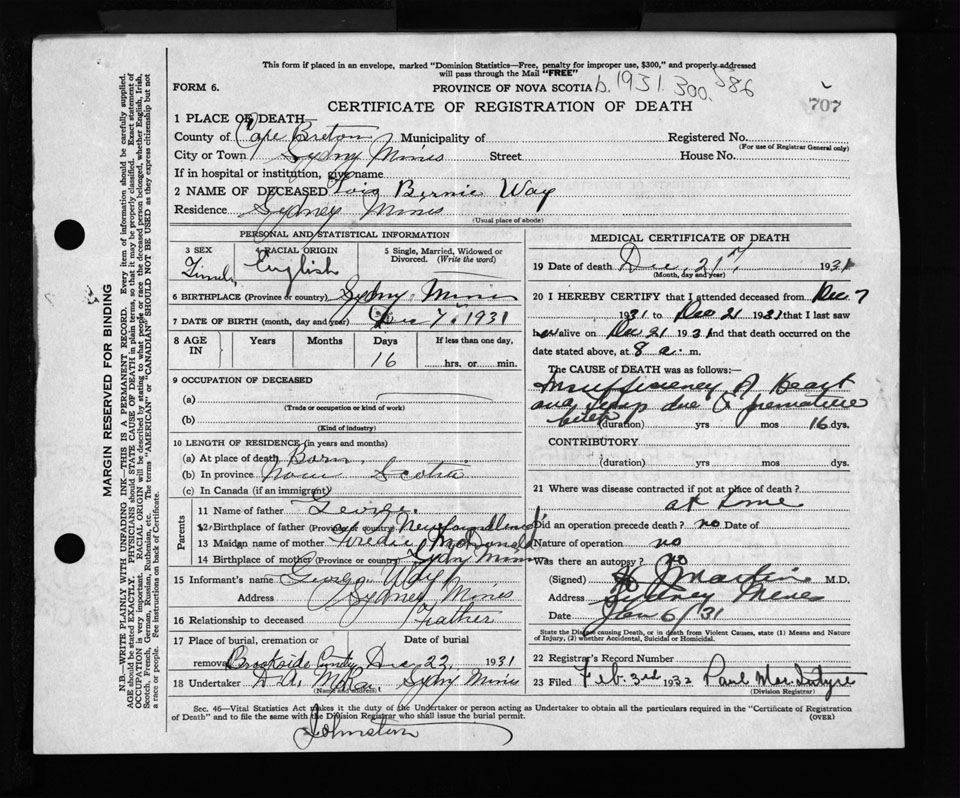 This form if placed in an envelope, marked "Dominion Statistics—Free, penalty for improper use, $300," and properly addressed
will pass through the Mail "FREE"
FORM 6. PROVINCE OF NOVA SCOTIA b. 1931. 300. 586
707
CERTIFICATE OF REGISTRATION OF DEATH
1 PLACE OF DEATH
County of Cape Breton Municipality of Registered No.
(For use of Registrar General only)
City or Town Sydny Mines Street House No.
If in hospital or institution, give name
2 NAME OF DECEASED Lois Bernie Way
Residence Sydney Mines
(Usual place of abode)
PERSONAL AND STATISTICAL INFORMATION
3 SEX RACIAL ORIGIN 5 Single, Married, Widowed or
Divorced. (Write the word)
English
6 BIRTHPLACE (Province or country) Sydny Mines
7 DATE OF BIRTH (month, day and year) Dec 7, 1931
8 AGE IN Years Months Days If less than one day,
16 hrs. or min.
9 OCCUPATION OF DECEASED
(a)
(Trade or occupation or kind of work)
(b)
(Kind of industry)
10 LENGTH OF RESIDENCE (in years and months)
(a) At place of death Born
(b) In province Nova Scotia
(c) In Canada (if an immigrant)
Parents
11 Name of father George
12 Birthplace of father (Province or country) Newfoundland
13 Maiden name of mother McDonald
14 Birthplace of mother (Province or country) Sydny Mines
15 Informant's name George Way
Address Sydney Mines
16 Relationship to deceased Father
17 Place of burial, cremation or Date of burial
removal Brookside Dec 22, 1931
18 Undertaker D.A. McRa Sydny Mines
(Name and address)
MEDICAL CERTIFICATE OF DEATH
19 Date of death Dec, 21 1931
(Month, day and year)
20 I HEREBY CERTIFY that I attended deceased from Dec 7
1931 to Dec 21 1931 that I last saw
alive on Dec 21 1931 and that death occurred on
date stated above, at 8 a. m.
The CAUSE of DEATH was as follows:
Insufficiency of Heart
and Lungs due to premature
birth
(duration) yrs mos 16 dys.
CONTRIBUTORY
(duration) yrs mos dys.
21 Where was disease contracted if not at place of death?
at home
Did an operation precede death? no Date of
Nature of operation no
Was there an autopsy? no
(Signed) Martin M.D.
Address Sydney Mines
Date Jan 6/31
State the Disease causing Death, or in death from Violent Causes, state (1) Means and Nature
of Injury, (2) whether Accidental, Suicidal or Homicidal.
22 Registrar's Record Number
23 Filed Feb. 3rd 1932 Paul MacIntyre
(Division Registrar)
Sec. 46—Vital Statistics Act makes it the duty of the Undertaker or person acting as Undertaker to obtain all the particulars required in the "Certificate of Registration
of Death" and to file the same with the Division Registrar who shall issue the burial permit. (OVER)
Johnston
MARGIN RESERVED FOR BINDING
N.B.—WRITE PLAINLY WITH UNFADING INK—THIS IS A PERMANENT RECORD. Every item of information should be carefully supplied.
AGE should be stated EXACTLY. PHYSICIANS should STATE CAUSE OF DEATH in plain terms, so that it may be properly classified. Exact statement of
OCCUPATION is very important. RACIAL ORIGIN will be described by stating to what people or race the deceased person belonged, whether English, Irish,
Scotch, French, German, Russian, Ruthenian, etc. The terms "AMERICAN" or "CANADIAN" SHOULD NOT BE USED as they express citizenship but not
a race or people. See instructions on back of Certificate.